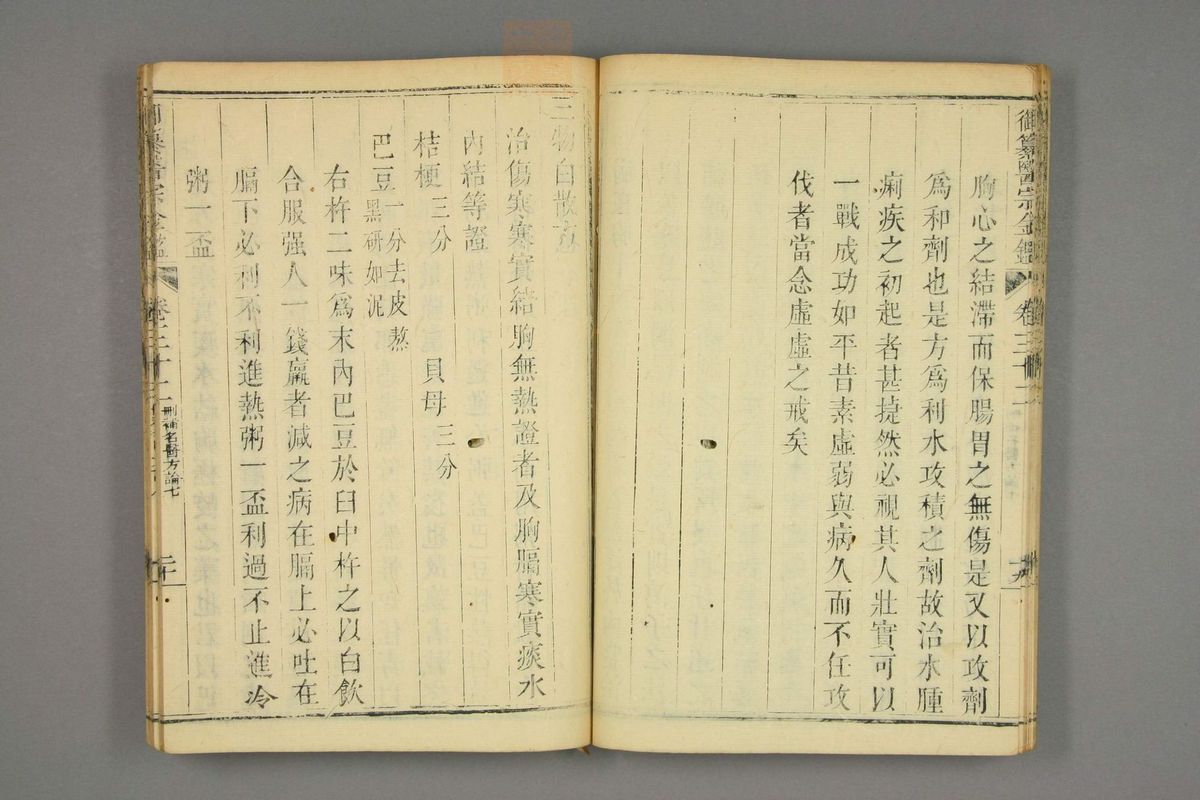 御纂醫宗金鑑 卷三十二
胸心之結滯而保腸胃之無傷是又以攻劑
爲和劑也是方爲利水攻積之劑故治水腫
痢疾之初起者甚捷然必視其人壯實可以
一戰成功如平昔素虛弱與病久而不任攻
伐者當念虛虛之戒矣
三物白散方
治傷寒寒實結胸無熱證者及胸膈寒實痰水
內結等證
桔梗三分 貝母三分
巴豆一分去皮熬
黑研如泥
右杵二味爲末內巴豆於臼中杵之以白飲
合服强人一錢羸者減之病在膈上必吐在
膈下必利不利進熱粥一盃利過不止進冷
粥一盃
刪補名醫方論七
二十